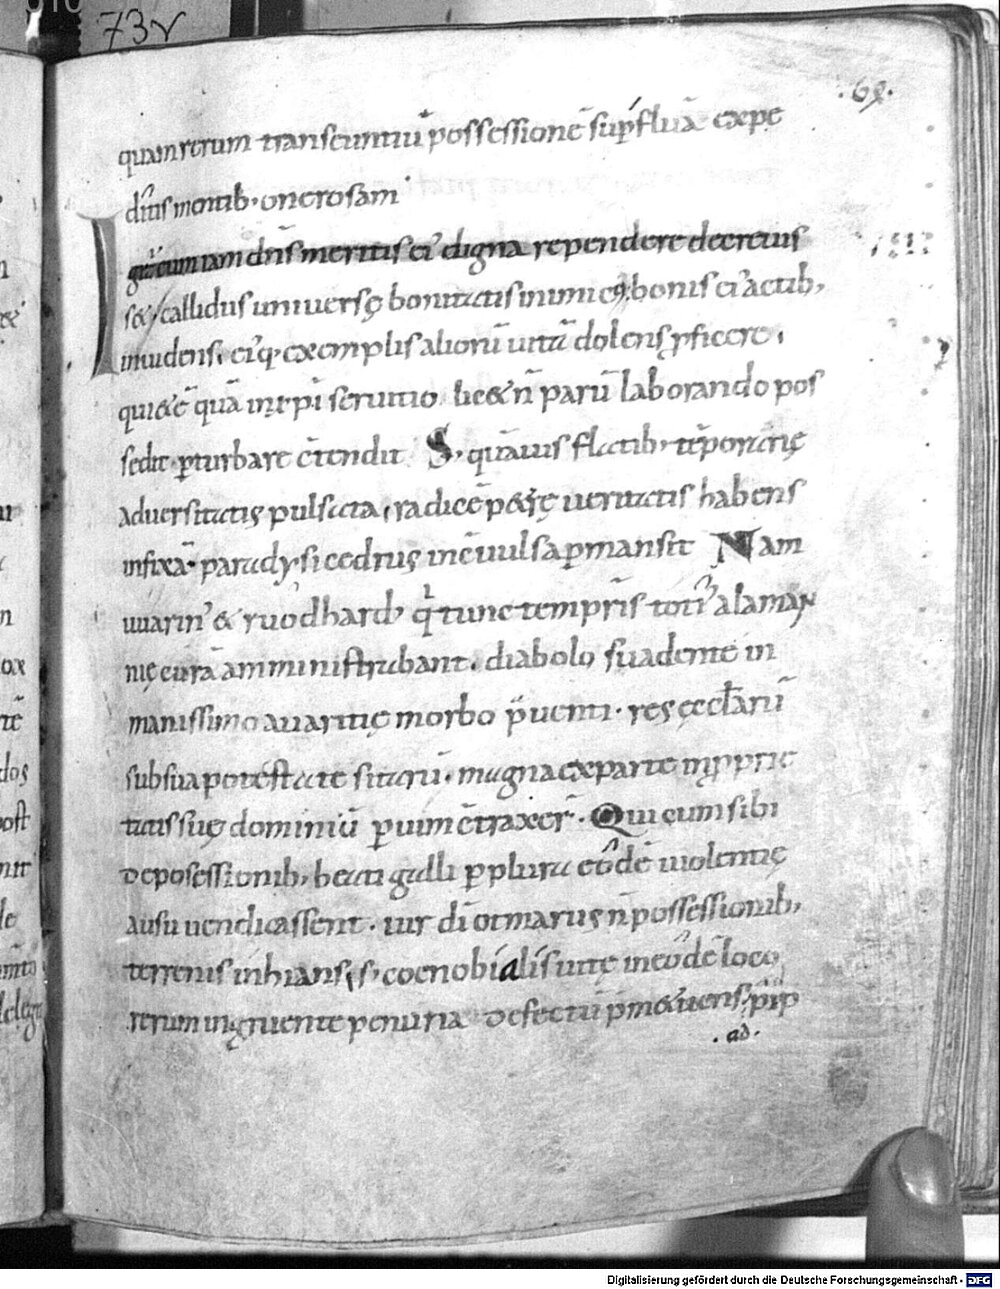 73v
69.
quam rerum transeuntiū possessionē sup̄fluā expe
ditis mentib; onerosam
Igit̄ cum iam dn̄s meritis ei' digna rependere decreuis
s& callidus uniuersę bonitatis inimic9, bonis ei' actib;
inuidens, ei'q; exemplis aliorū uitā dolens p̄ficere,
qui&ē quā in xp̄i seruitio lic& n̄ parū laborando pos
sedit p̄turbare c̄tendit. S; quāuis flatib; tēporarię
aduersitatis pulsata, radicē p&rę ueritatis habens
infixā, paradysi cedrus incōuulsa p̄mansit. Nam
uuarin' & ruodhard' q̄ tunc temp̄ris toti' alaman
nię curā amministrabant, diabolo suadente in
manissimo auaritię morbo p̄uenti, res ęcctarū
sub sua potestate sitarū, magna ex parte in p̄prie
tatis suę dominiū p̄uim c̄traxer̄. Qui cum sibi
de possessionib; beati galli p̄plura eōdē uiolentię
ausu uendicassent, uir dī otmarus n̄ possessionib;
terrenis inhians, s; coenobialis uitę in eōdē loco
rerum ingruente penuria defectū p̄m&uens, pip
.ad.
Digitalisierung gefördert durch die Deutsche Forschungsgemeinschaft - DFG